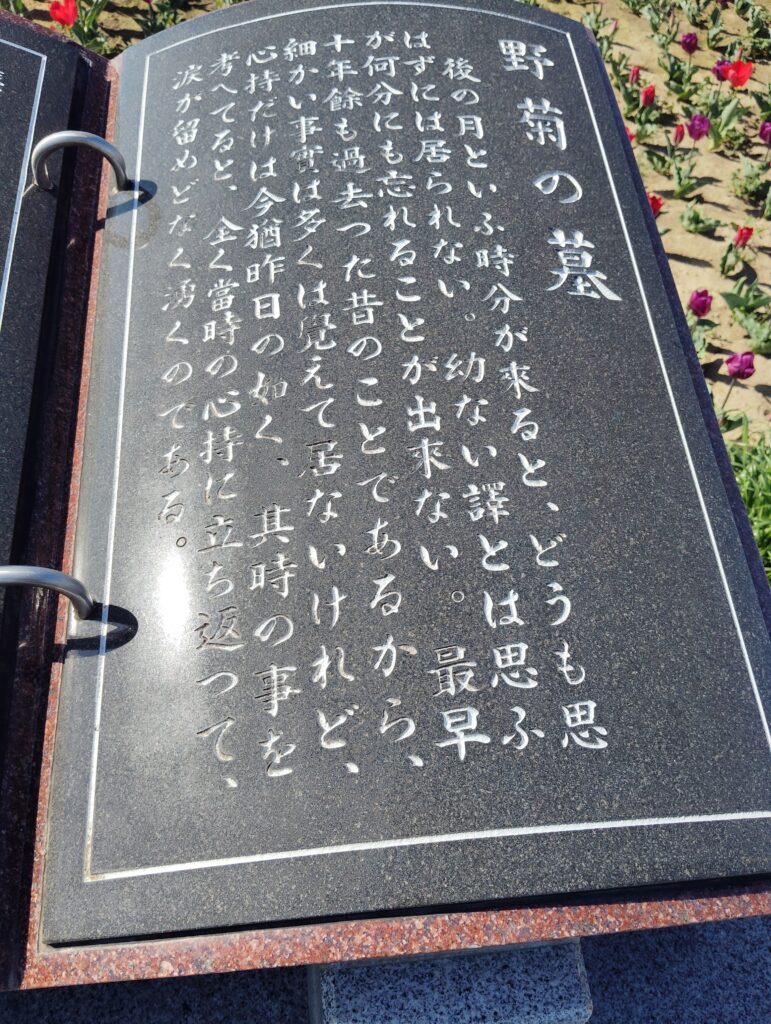 野菊の墓
後の月といふ時分が来ると、どうも思
はずには居られない。幼ない譯とは思ふ
が何分にも忘れることが出来ない。最早
十年餘も過去つた昔のことであるから、
細かい事實は多くは覚えて居ないけれど、
心持だけは今猶昨日の如く、其時の事を
考へてると、全く當時の心持に立ち返つて、
涙が留めどなく湧くのである。